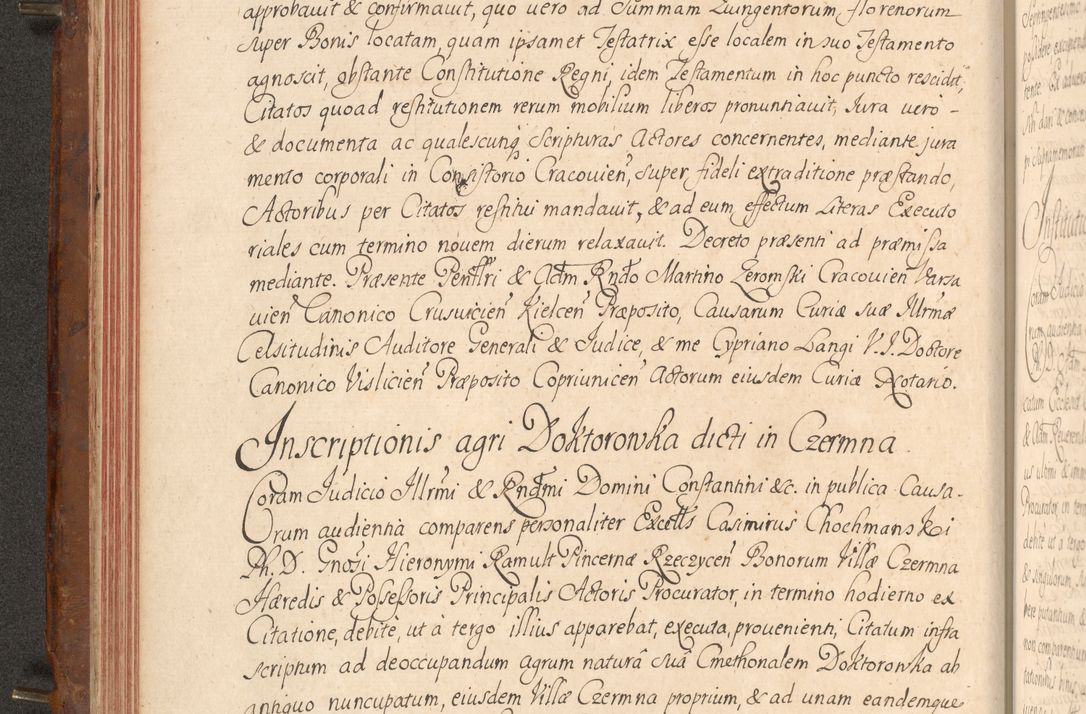 approbavit & confirmavit, quo vero ad Summam Quingentorum florenorum
super Bonis locatam, quam ipsamet Testatrix esse localem in suo Testamento
agnoscit, obstante Constitutione Regni, idem Testamentum in hoc puncto rescidit,
Citatos quoad restitutionem rerum mobilium liberos pronuntiavit, Iura vero -
& documenta ac qualescunq Scripturas Actores concernentes, mediante jura
mento corporali in Consistorio Cracovien, super fideli extraditione præstando,
Actoribus per Citatos restitui mandavit, & ad eum effectum Literas Executo
riales cum termino novem dierum relaxavit. Decreto præsenti ad præmissa
mediante. Præsente Perillri & Adm Rndo Martino Zeromski Cracovien Varsa
vien Canonico Crusvicien Kielcen Præposito, Causarum Curiæ suæ Illrmæ
Celsitudinis Auditore Generali & Iudice, & me Cypriano Langi V.I. Doctore
Canonico Vislicien Præposito Copriunicen Actorum eiusdem Curiæ Notario.
Inscriptionis agri Doktorowka dicti in Czermna
Coram Iudicio Illrmi & Rndmi Domini Constantini &c. in publica Causa-
rum audientia comparens personaliter Excells Casimirus Chochmanski
Ph. D. Gnosi Hieronymi Ramult Pincernæ Rzeczycen Bonorum Villæ Czermna
Hæredis & Possessoris Principalis Actoris Procurator, in termino hodierno ex
Citatione, debitè, ut à tergo illius apparebat, executa, provenienti, Citatum infra
scriptum ad deoccupandum agrum naturâ suâ Cmethonalem Doktorowka ab
antiquo nuncupatum, eiusdem Villæ Czermna proprium, & ad unam eandemque